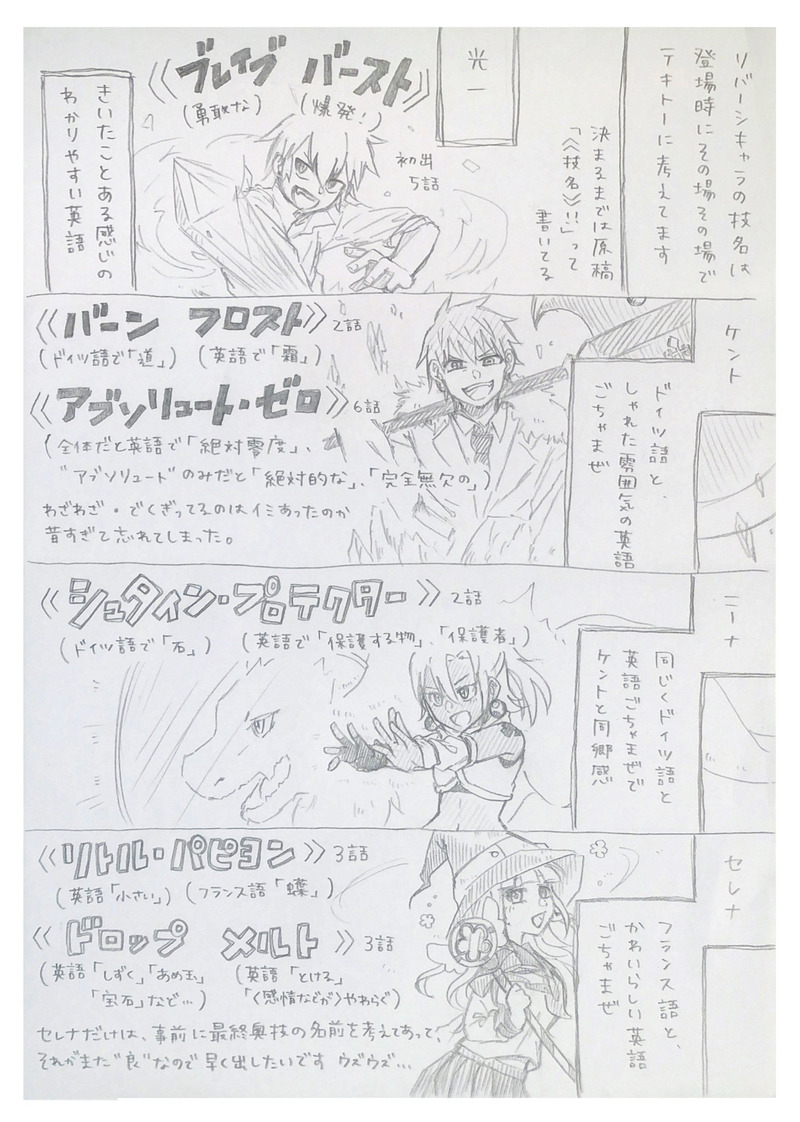 リバーシキャラの技名は
登場時にその場その場で
テキトーに考えてます
決まるまでは原稿
「《技名》!!」って
書いてる
光一
《ブレイブ バースト》
(勇敢な) (爆発!)
初出
5話
きいたことある感じの
わかりやすい英語
ケント
ドイツ語と、
しゃれた雰囲気の英語
ごちゃまぜ
《バーン フロスト》2話
(ドイツ語で「道」) (英語で「霜」)
《アブソリュート・ゼロ》6話
(全体だと英語で「絶対零度」、
"アブソリュード"のみだと「絶対的な」、「完全無欠の」)
わざわざ・でくぎってるのはイミあったのか
昔すぎて忘れてしまった。
ニーナ
同じくドイツ語と
英語ごちゃまぜで
ケントと同郷感
《シュタイン・プロテクター》2話
(ドイツ語で「石」) (英語で「保護する物」、「保護者」)
セレナ
フランス語と、
かわいらしい英語
ごちゃまぜ
《リトル・パピヨン》3話
(英語「小さい」) (フランス語「蝶」)
《ドロップ メルト》3話
(英語「しずく」「あめ玉」
「宝石」など…)
(英語「とける」
「〈感情などが〉やわらぐ)
セレナだけは、事前に最終奥技の名前を考えてあって、
それがまた"良"なので早く出したいです ウズウズ…